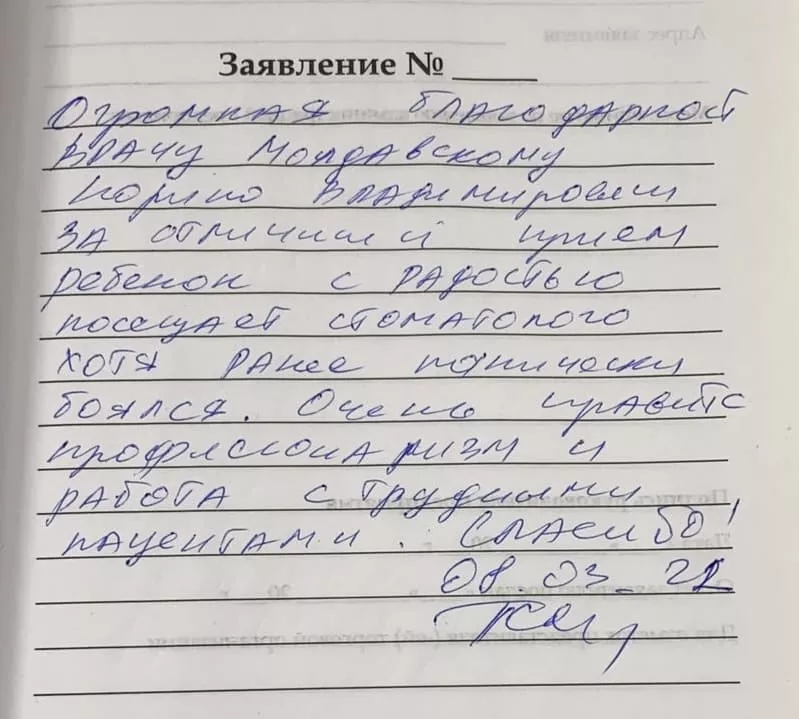 Заявление № ____
Огромная благодарност
врачу Молдавскому
Владимирович
за отличный прием
ребенок с радостью
посещает стоматолого
хотя ранее панически
боялся. Очень нравитс
профессионализм и
работа с трудными
пациентами. Спасибо!
08.03.22